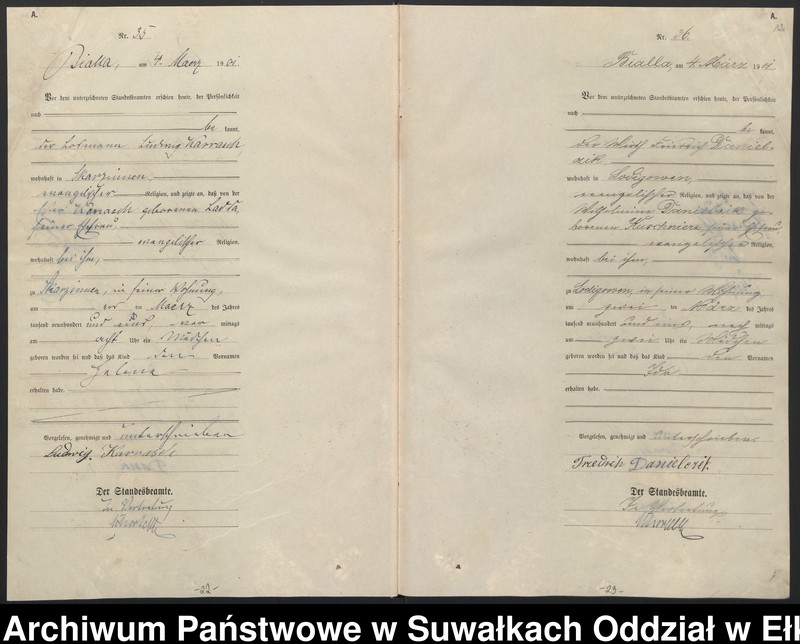 A.
Nr. 35
Bialla, am 4. Maerz 1901
Vor dem unterzeichneten Standesbeamten erschien heute, der Persönlichkeit
nach
be kannt,
der Losmann Ludwig Karrasch
wohnhaft in Skarzinnen,
evangelischer Religion, und zeigte an, daß von der
Karrasch geborenen Ladda
seiner Ehefrau,
evangelischer Religion,
wohnhaft bei ihm,
zu Skarzinnen, in seiner Wohnung,
am Maerz des Jahres
tausend neunhundert und eins, vor mittags
um acht Uhr ein Mädchen
geboren worden sei und daß das Kind den Vornamen
Helene
erhalten habe.
Vorgelesen, genehmigt und unterschrieben
Ludwig Karrasch
Der Standesbeamte.
In Vertretung
-22-
A.
Nr. 36.
Bialla, am 4. März 1901
Vor dem unterzeichneten Standesbeamten erschien heute, der Persönlichkeit
nach
be kannt,
der Wirth Friedrich Daniel-
zik
wohnhaft in Lodigowen,
evangelischer Religion, und zeigte an, daß von der
Wilhelmine Danielzik ge-
borenen seiner Ehefrau,
evangelischer Religion,
wohnhaft bei ihm,
zu Lodigowen, in seiner Wohnung
am zwei ten März des Jahres
tausend neunhundert und eins, nach mittags
um zwei Uhr ein Mädchen
geboren worden sei und daß das Kind den Vornamen
Ida
erhalten habe.
Vorgelesen, genehmigt und unterschrieben
Friedrich Danielzik
Der Standesbeamte.
In Vertretung
-23-
Archiwum Państwowe w Suwałkach Oddział w Eł